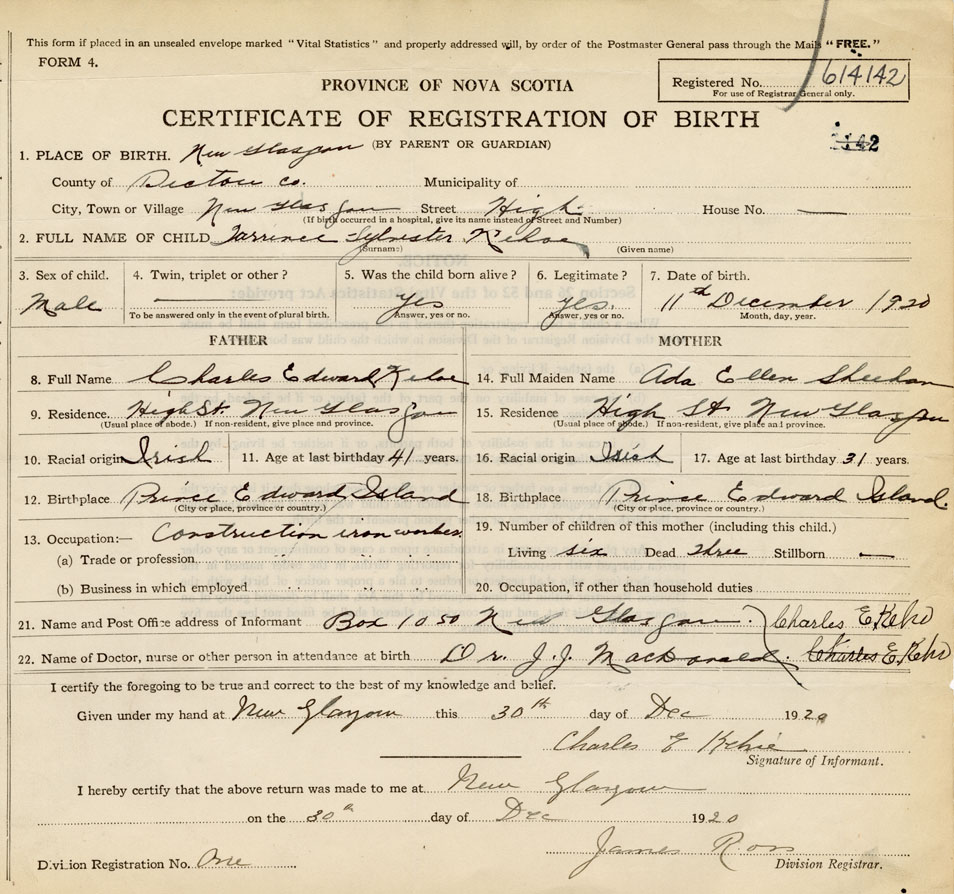 This form if placed in an unsealed envelope marked "Vital Statistics" and properly addressed will, by order of the Postmaster General pass through the Mails "FREE."
FORM 4.
Registered No. 614142
For use of Registrar General only.
PROVINCE OF NOVA SCOTIA
CERTIFICATE OF REGISTRATION OF BIRTH
(BY PARENT OR GUARDIAN)
1. PLACE OF BIRTH. New Glasgow
County of Pictou Co. Municipality of
City, Town or Village New Glasgow Street High House No. —
(If birth occurred in a hospital, give its name instead of Street and Number)
2. FULL NAME OF CHILD Tarrence Sylvester Kehoe
(Surname) (Given name)
3. Sex of child. 4. Twin, triplet or other? 5. Was the child born alive? 6. Legitimate? 7. Date of birth.
Male — Yes Yes. 11th December 1920
To be answered only in the event of plural birth. Answer, yes or no. Answer, yes or no. Month, day, year.
FATHER MOTHER
8. Full Name Charles Edward Kehoe 14. Full Maiden Name Ada Ellen Sheehan
9. Residence. High St. New Glasgow 15. Residence High St New Glasgow
(Usual place of abode.) If non-resident, give place and province. (Usual place of abode.) If non-resident, give place and province.
10. Racial origin Irish 11. Age at last birthday 41 years. 16. Racial origin Irish 17. Age at last birthday 31 years.
12. Birthplace Prince Edward Island 18. Birthplace Prince Edward Island.
(City or place, province or country.) (City or place, province or country.)
13. Occupation:— Construction iron worker. 19. Number of children of this mother (including this child.)
(a) Trade or profession Living six Dead three Stillborn —
(b) Business in which employed 20. Occupation, if other than household duties
21. Name and Post Office address of Informant Box 1050 New Glasgow. Charles E. Keho
22. Name of Doctor, nurse or other person in attendance at birth Dr. J. J. MacDonald. Charles E. Keho
I certify the foregoing to be true and correct to the best of my knowledge and belief.
Given under my hand at New Glasgow this 30th day of Dec 1920
Charles E Kehoe
Signature of Informant.
I hereby certify that the above return was made to me at New Glasgow
on the 30th day of Dec 1920
James Ross
Division Registration No. One Division Registrar.